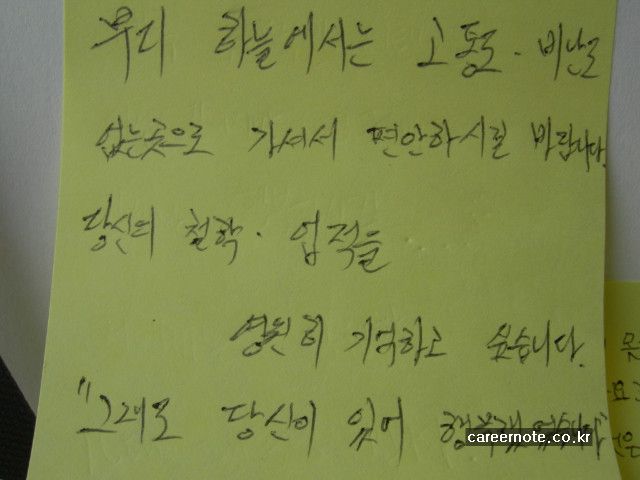 부디 하늘에서는 고통도·비난도
없는곳으로 가셔서 편안하시길 바랍니다.
당신의 철학·업적을
영원히 기억하고 싶습니다.
"그래도 당신이 있어
careernote.co.kr